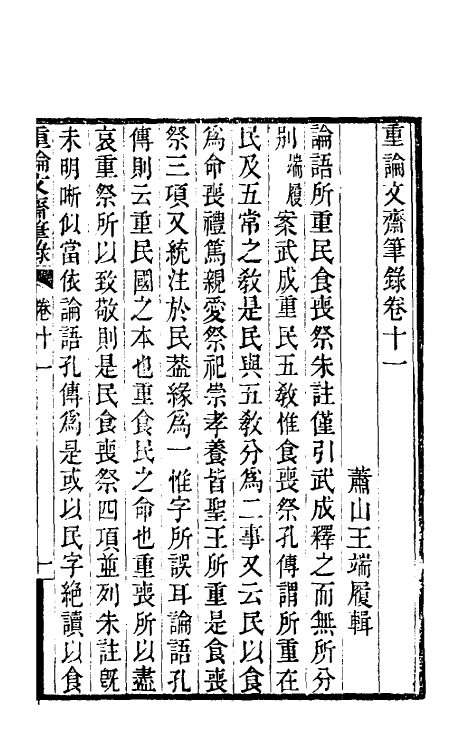 重論文齋筆錄卷十一
蕭山王端履輯
論語所重民食喪祭朱註僅引武成釋之而無所分
別端履案武成重民五敎惟食喪祭孔傳謂所重在
民及五常之敎是民與五敎分爲二事又云民以食
爲命喪禮篤親愛祭祀崇孝養皆聖王所重是食喪
祭三項又統注於民葢緣爲一惟字所誤耳論語孔
傳則云重民國之本也重食民之命也重喪所以盡
哀重祭所以致敬則是民食喪祭四項並列朱註旣
未明晰似當依論語孔傳爲是或以民字絶讀以食
重論文齋筆錄 卷十一 一